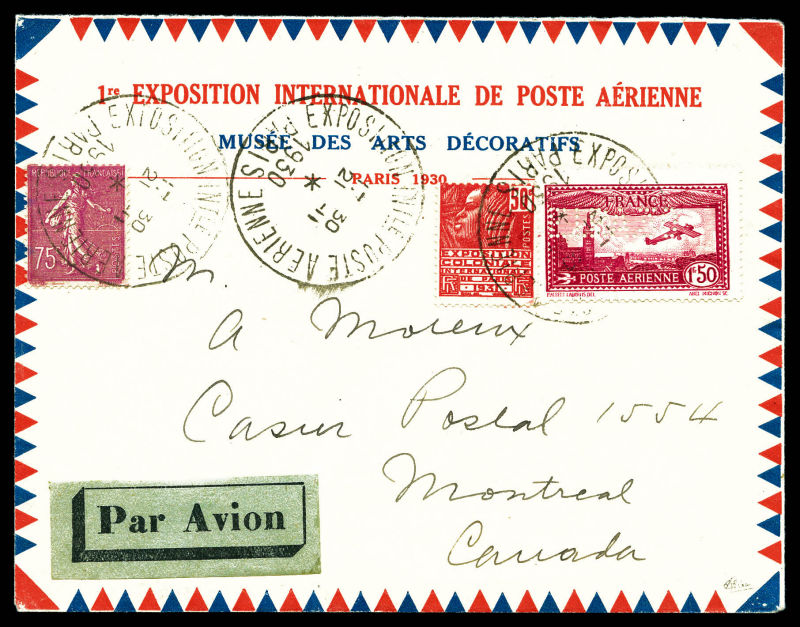 1re EXPOSITION INTERNATIONALE DE POSTE AÉRIENNE
MUSÉE DES ARTS DÉCORATIFS
PARIS 1930
EXPOSITION INTLE POSTE AERIENNE
PARIS
1930
21 - 11
30
REPUBLIQUE FRANÇAISE
75
50c
POSTES
EXPOSITION
COLONIALE
INTERNATIONALE
DE PARIS
1931
FRANCE
POSTE AERIENNE
1F50
M
A Moreux
Casier Postal 1554
Montreal
Canada
Par Avion